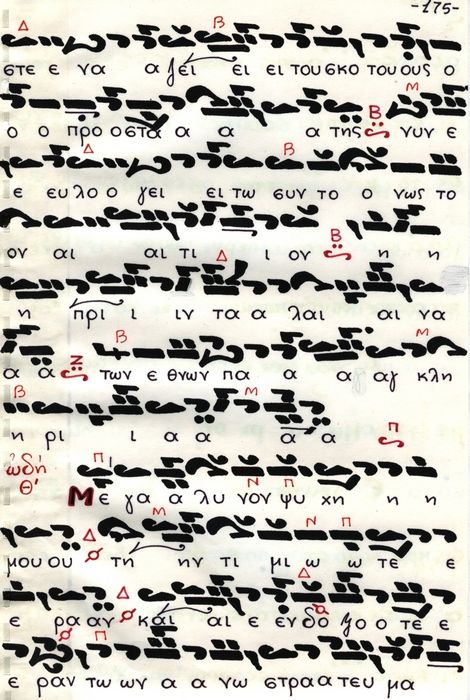 -175-
στε ε να α γει ει ει του σκο του ους ο
ο ο προ οστα α α α της νυν ε
ε ευλο ο γει ει τω συν το ο νως το
ον αι αι τι ι ον η η
η πρι ι ιν τα α λαι αι να
α α των ε θνων πα α α αγ κλη
η ρι ι α α α α
ὠδή θ΄
Με γα α λυ νον ψυ χη η η
μου ου τη ην τι μι ω ω τε ε
ε ρα αν και αι ε εν δο ξο ο τε ε
ε ραν τω ων α α νω στρα α τευ μα